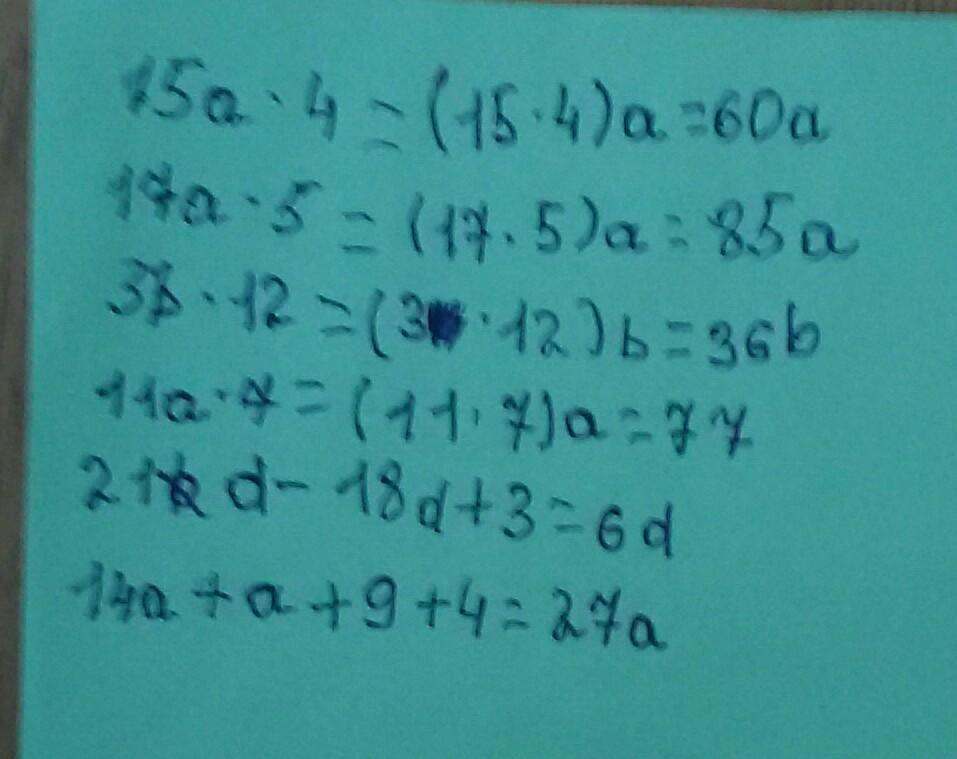 15a · 4 = (15 · 4)a = 60a
17a · 5 = (17 · 5)a = 85a
3b · 12 = (3 · 12)b = 36b
11a · 7 = (11 · 7)a = 77
21 d - 18d + 3 = 6d
14a + a + 9 + 4 = 27a